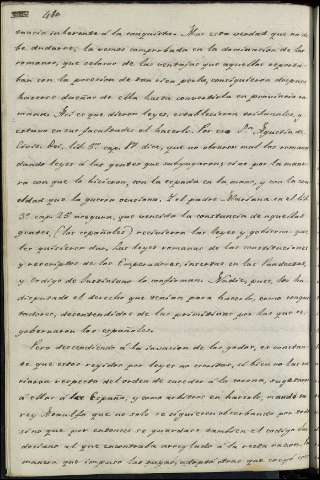 480
cuencia inherente á la conquista. Mas esta verdad que no de
be dudarse, la vemos comprobada en la dominacion de los
romanos, que celosos de las ventajas que aquellos reporta
ban con la posesion de tan rico pueblo, consiguieron despues
hacerse dueños de ella hasta convertirla en provincia ro
mana. Así es que dieron leyes, establecieron tribunales, y
en sus facultades el hacerlo. Por eso Sn. Agustin de
Civit. Dei, lib. 5º cap. 17 dice, que no obraron mal los romanos
dando leyes á las gentes que subyugaron; sino por la mane
ra con que lo hicieron, con la espada en la mano, y con la
que la guerra ocasiona. Y el padre Mariana en el lib.
3º cap. 25 asegura, que vencida la constancia de aquellas
grandes, (los españoles) recibieron las leyes y gobierno que
les quisieron dar. Las leyes romanas de las constituciones
y rescriptos de los Emperadores, insertas en las Pandectas,
y Código de Justiniano lo confirman. Nadie, pues, les ha
disputado el derecho que tenian para hacerlo, como conquis
tadores, desentendidos de las primitivas por las que se
gobernaron los españoles.
Pero descendiendo á la invasion de los godos, es constan
te que estos regidos por leyes no escritas, si bien no las
respecto del orden de suceder á la corona, sugetaron
á ellas á la España, y como árbitros en hacerlo, mandó su
rey Ataulfo que no solo se siguiesen observando por
sino que por entonces se guardase tambien el código
dosiano al que encontraba arreglado á la recta razon.
manera que impuso las suyas, adoptó otras que creyó